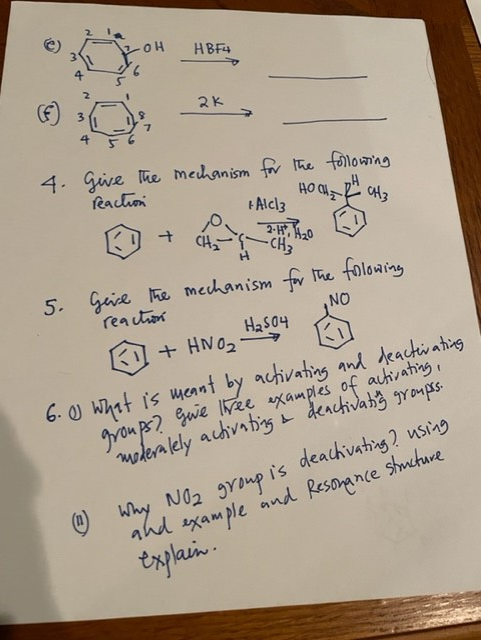 (e) 1 2 3 4 5 6 7 OH HBF4
(f) 1 2 3 4 5 6 7 8 2K
4. Give the mechanism for the following
reaction
+ O CH2 - C - CH3 H 1. AlCl3 2. H+, H2O HOCH2 H CH3
5. Give the mechanism for the following
reaction
+ HNO2 H2SO4 NO
6. (i) What is meant by activating and deactivating
groups? Give three examples of activating,
moderately activating & deactivating groups.
(ii) Why NO2 group is deactivating? using
and example and Resonance structure
explain.